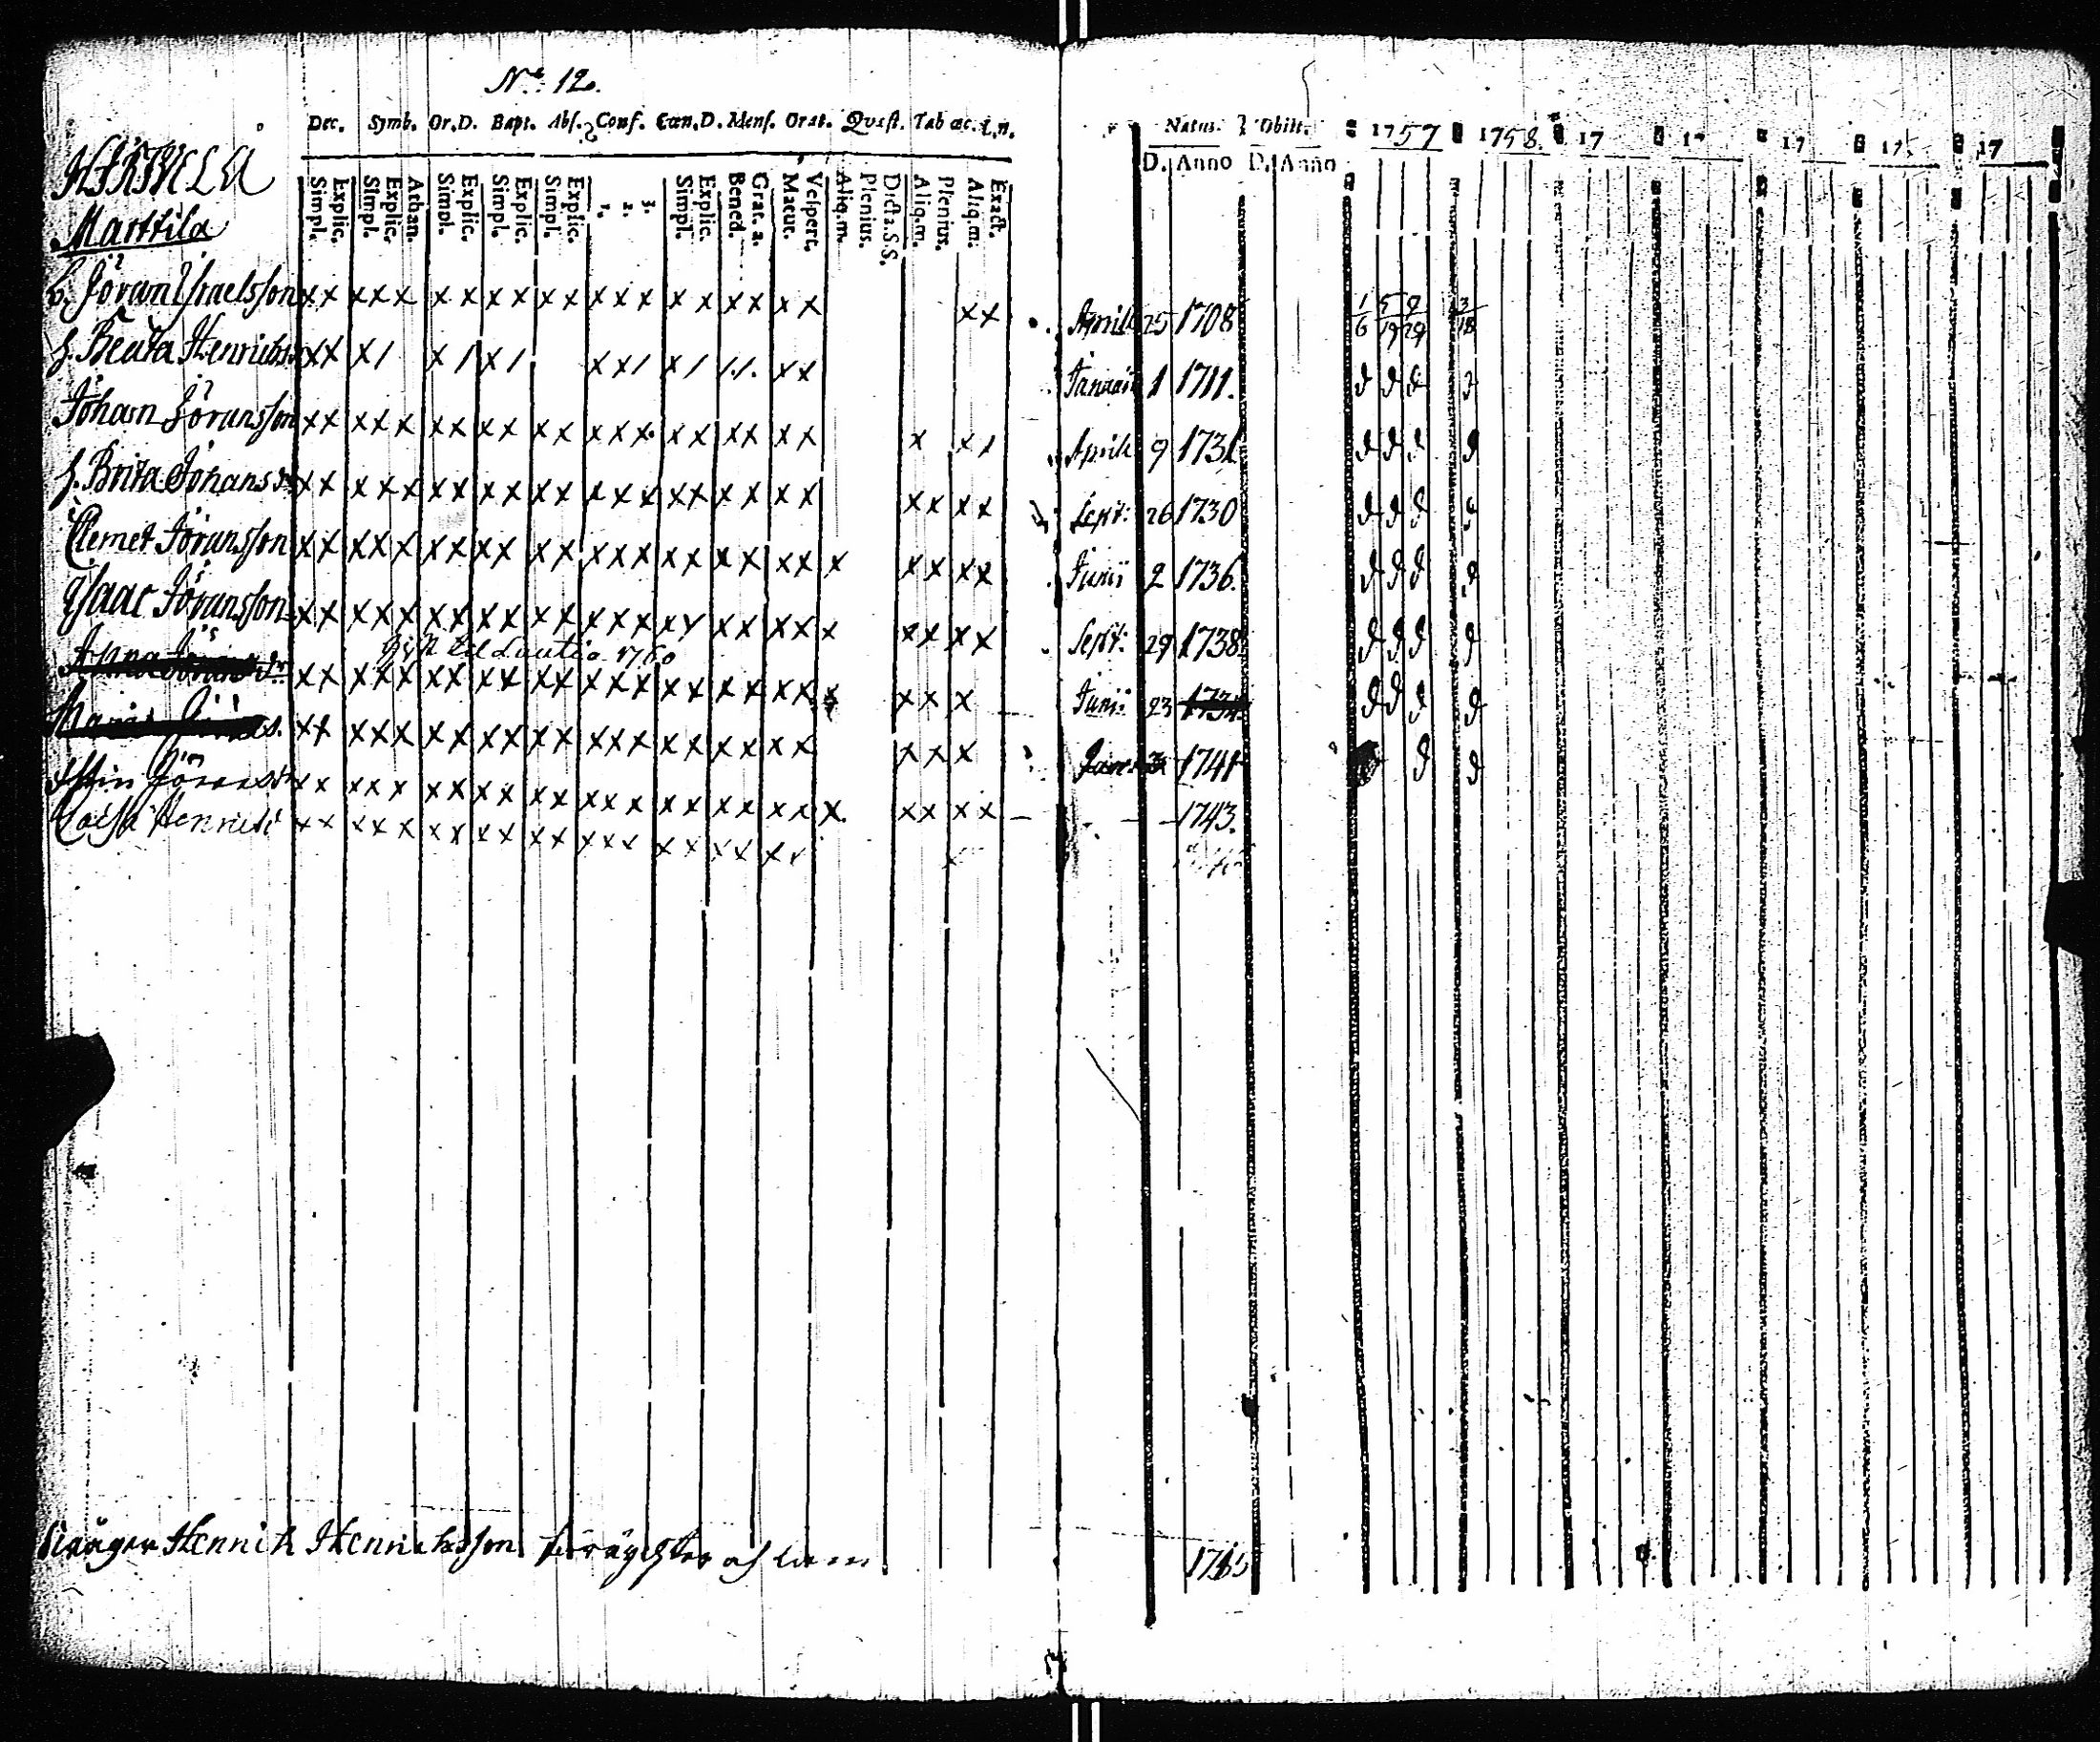 No: 12.
Dec. Symb. Or.D. Bapt. Abs. Conf. Cœn.D. Mens. Orat. Quæst. Tab œc. i.n.
HIRWELA
Marttila
Simpl. Explic. Simpl. Explic. Athan. Simpl. Explic. Simpl. Explic. Simpl. Explic. 1. 2. 3. Simpl. Explic. Bened. Grat. a. Matut. Vespert. Aliq.m. Plenius. Dicta.S.S. Aliq.m. Plenius. Aliq.m. Exact.
b. Jöran Israelsson xx xxx xx xx xx xxx xx xx xx xx
h. Beata Henriksdr xx x/ x/ x/ xx/ x/ /./. xx
Johan Jöransson xx xxx xx xx xx xxx xx xx xx x x/
h. Brita Johansdr xx xxx xx xx xx xxx xx xx xx xx xx
Clemet Jöransson xx xxx xx xx xx xxx xx xx xx x xx xx
Isaac Jöransson xx xxx xx xx xx xxx xx xx xx x xx xx
gift til Lautia 1760
Anna Jöransdr xx xxx xx xx xx xxx xx xx xx x xx x
Maria xx xxx xx xx xx xxx xx xx xx xx x
Jöransdr xx xxx xx xx xx xxx xx xx xx x. xx xx
Henriks xx xxx xx xx xx xxx xx xx xx x
Henrik Henriksson
Natus. Obiit. 1757 1758. 17 17 17 17 17
D. Anno D. Anno
Aprill 25 1708 1/6 5/19 9/29 3/18
Januarii 1 1711.
Aprill 9 1731
Sept: 26 1730
Junii 2 1736.
Sept: 29 1738
Junii 23 1734
1741
1743.